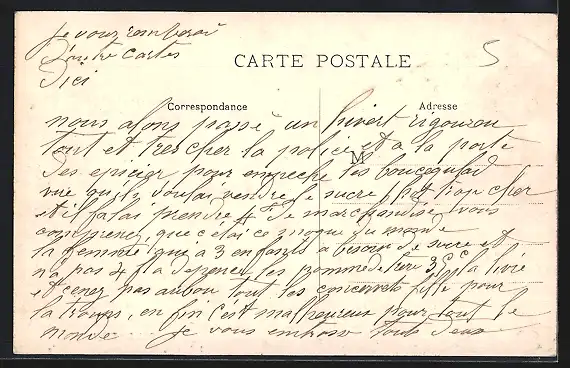 je vous
d'autre cartes
d'ici
5
CARTE POSTALE
Correspondance
Adresse
M
nous alons passé un hivert rigoureu
tout et tres cher la police et a la porte
des epicier pour empeche les
vue qu'ils voulai vendre le sucre trop cher
et il falai prendre 4# de marchandise vous
comprenez que cela ce moque du monde
la femme qui a 3 enfants a besoin de sucre et
n'a pas 4f a depencer les pomme de terre la livre
et cenez pas aubou tout les pour
la troupe, en fin c'est malheureux pour tout le
monde je vous embrasse tous deux